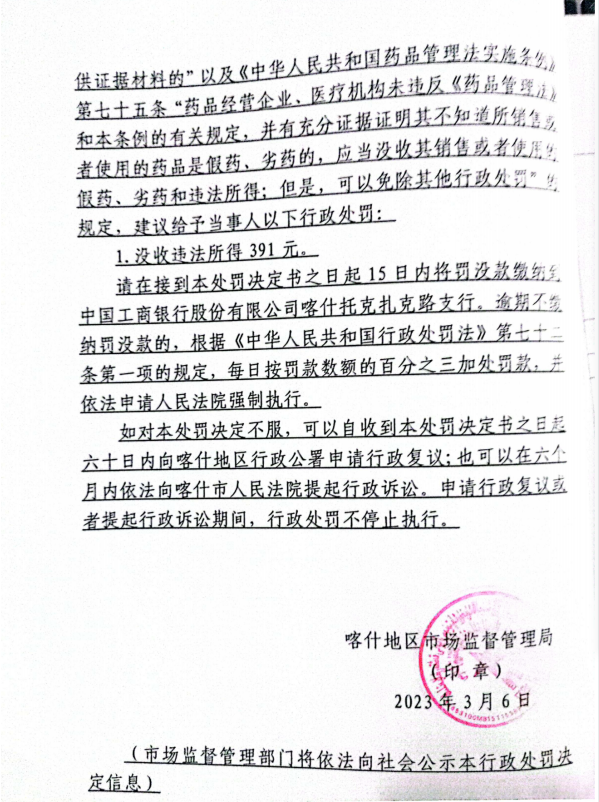 供证据材料的”以及《中华人民共和国药品管理法实施条例》
第七十五条“药品经营企业、医疗机构未违反《药品管理法》
和本条例的有关规定，并有充分证据证明其不知道所销售或
者使用的药品是假药、劣药的，应当没收其销售或者使用的
假药、劣药和违法所得；但是，可以免除其他行政处罚”的
规定，建议给予当事人以下行政处罚：
1.没收违法所得 391 元。
请在接到本处罚决定书之日起 15 日内将罚没款缴纳到
中国工商银行股份有限公司喀什托克扎克路支行。逾期不缴
纳罚没款的，根据《中华人民共和国行政处罚法》第七十二
条第一项的规定，每日按罚款数额的百分之三加处罚款，并
依法申请人民法院强制执行。
如对本处罚决定不服，可以自收到本处罚决定书之日起
六十日内向喀什地区行政公署申请行政复议；也可以在六个
月内依法向喀什市人民法院提起行政诉讼。申请行政复议或
者提起行政诉讼期间，行政处罚不停止执行。
喀什地区市场监督管理局
（印 章）
2023 年 3 月 6 日
（市场监督管理部门将依法向社会公示本行政处罚决
定信息）